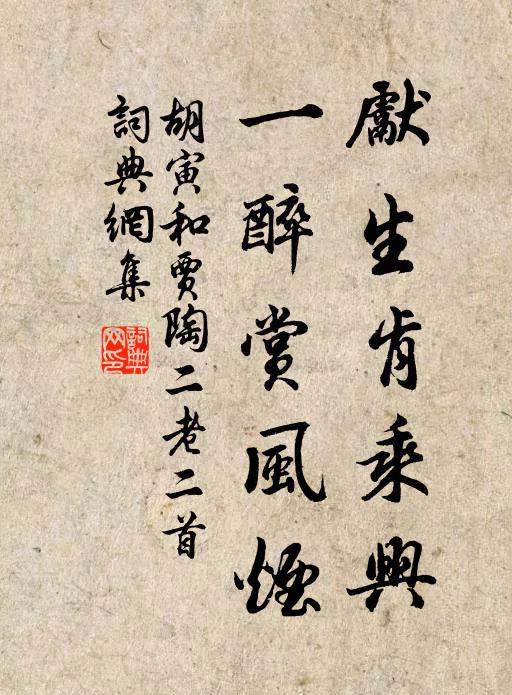 獻生肯乘興
一醉賞風煙
胡寅和賈陶二老二首
詞典網集
詞典網印